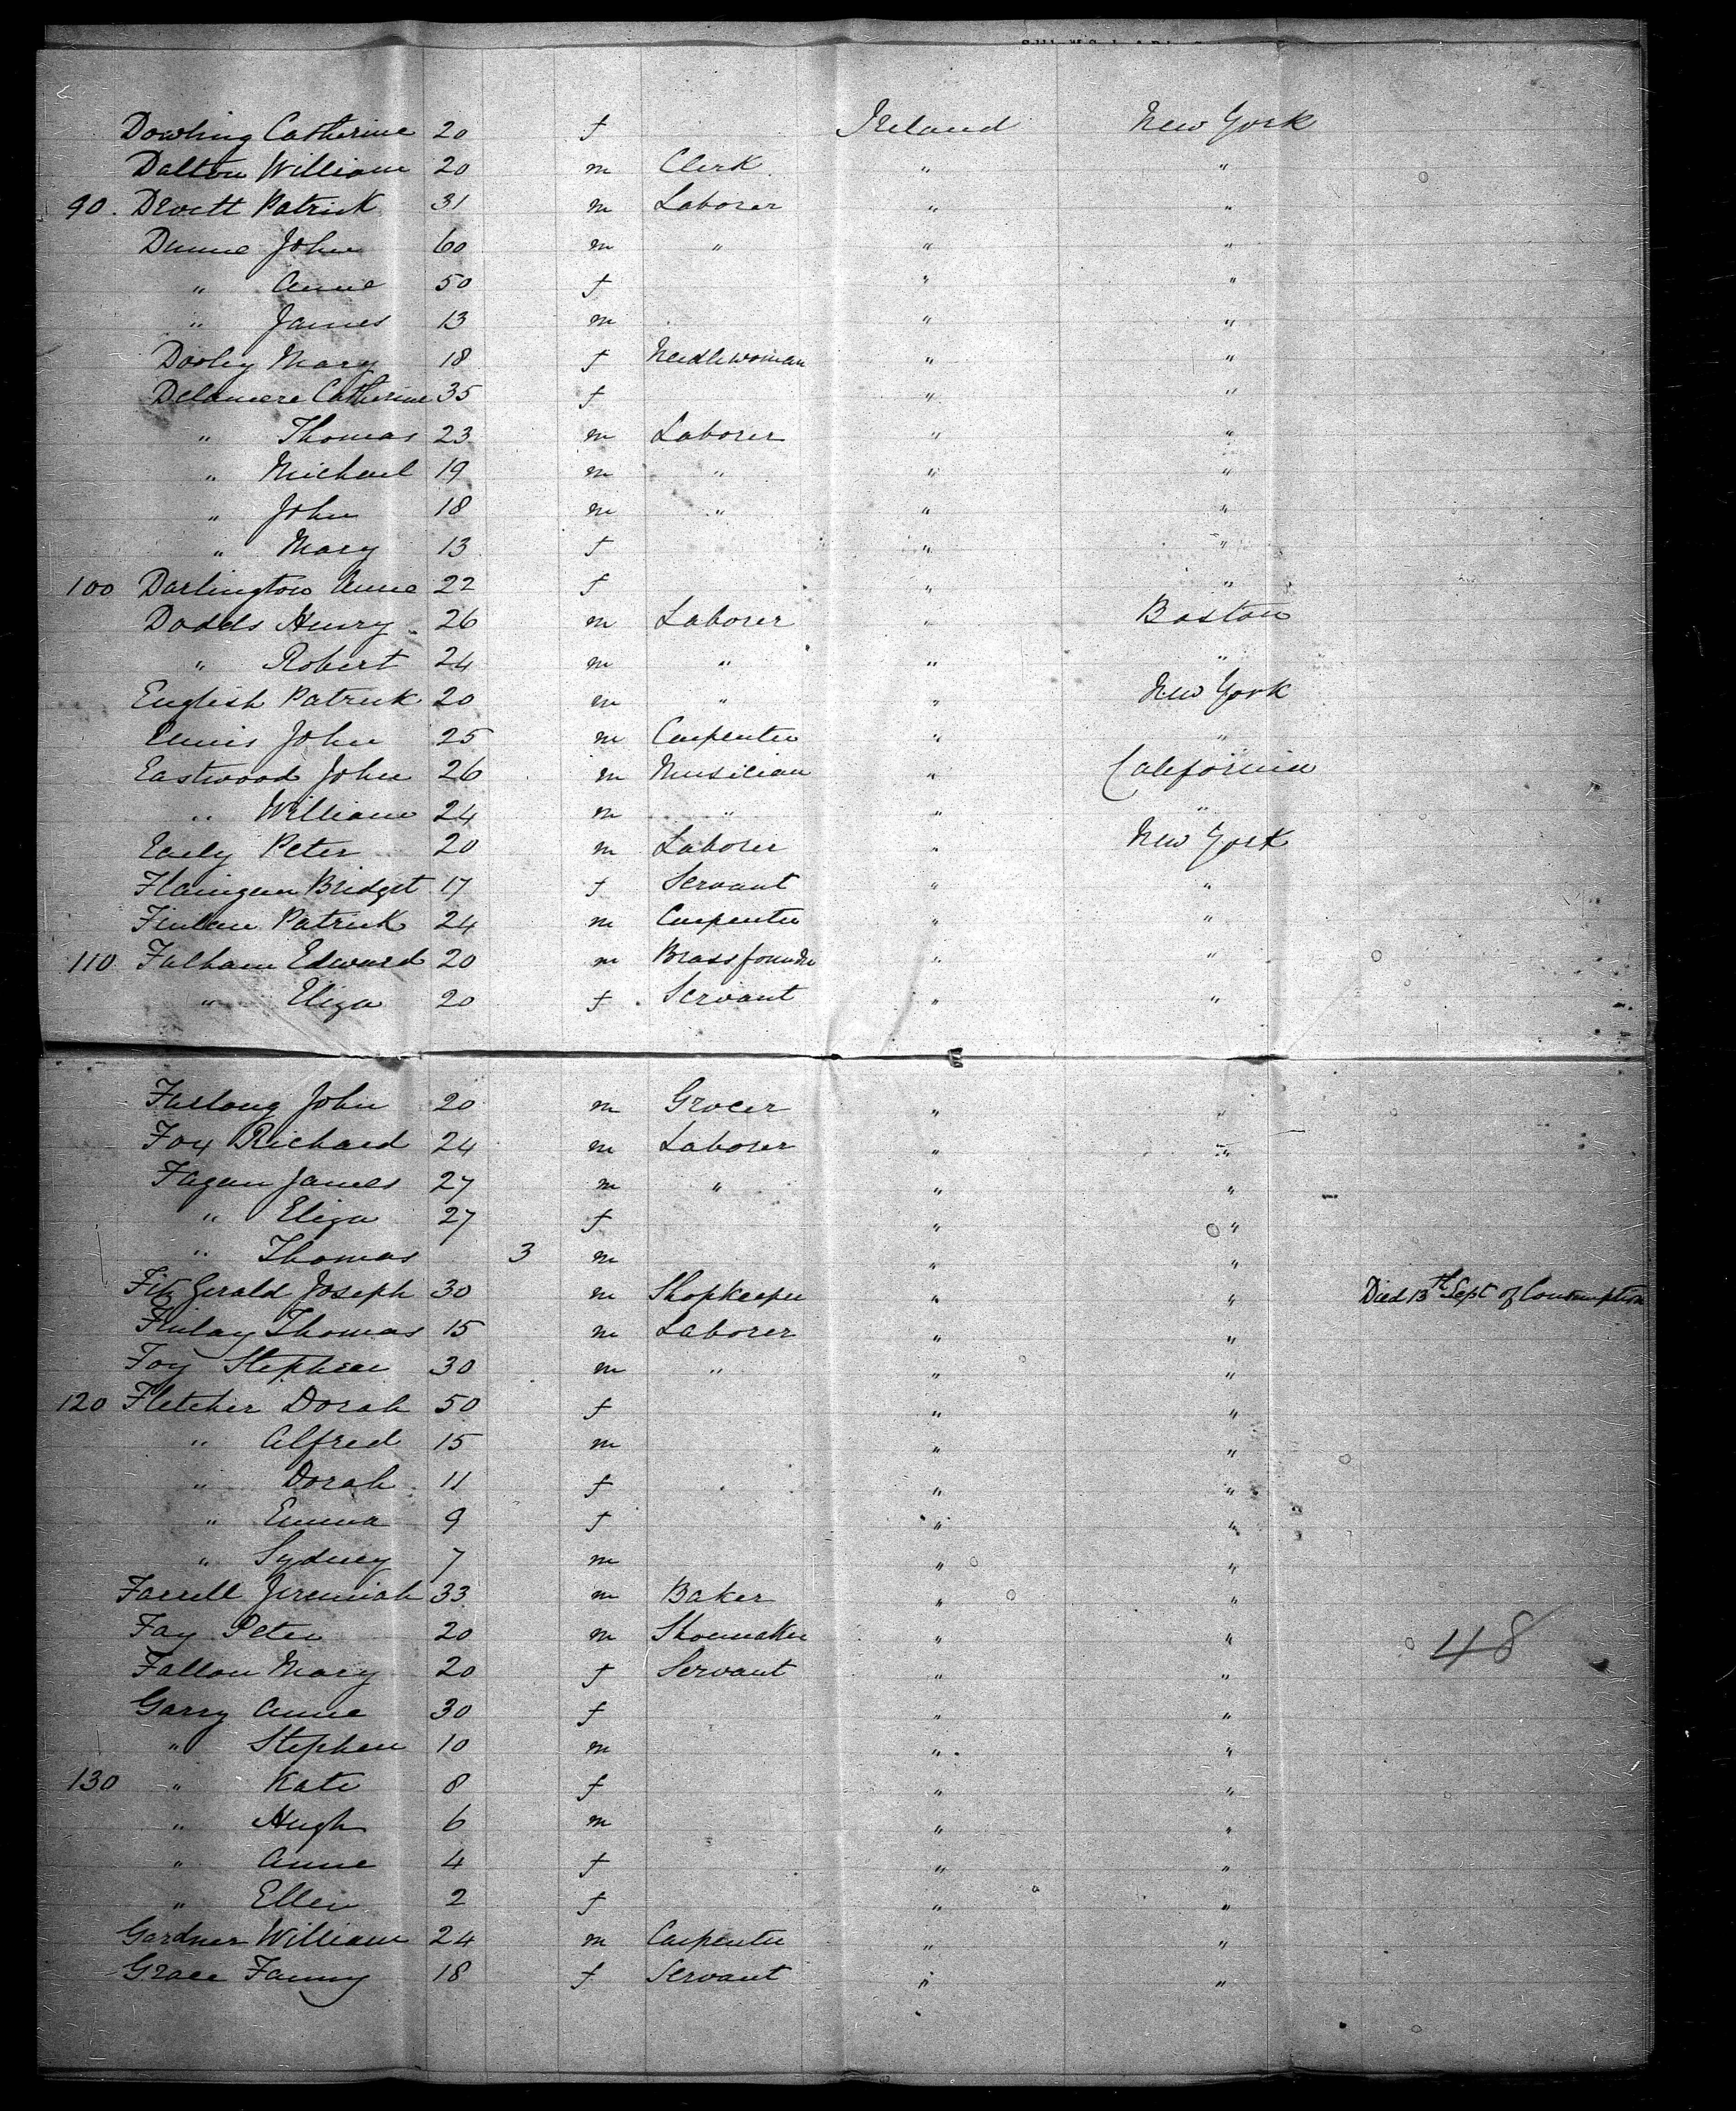 Dowling Catherine 20 f Ireland New York
Dalton William 20 m Clerk " "
90. Devett Patrick 31 m Laborer " "
Dunne John 60 m " " "
" Anne 50 f " "
" James 13 m " "
Dooley Mary 18 f Needlewoman " "
Delamere Catherine 35 f " "
" Thomas 23 m Laborer " "
" Michael 19 m " " "
" John 18 m " " "
" Mary 13 f " "
100 Darlington Anne 22 f " "
Dodds Henry 26 m Laborer " Boston
" Robert 24 m " " "
English Patrick 20 m " " New York
Ennis John 25 m Carpenter " "
Eastwood John 26 m Musician " California
" William 24 m " " "
Early Peter 20 m Laborer " New York
Flanigan Bridget 17 f Servant " "
Finlan Patrick 24 m Carpenter " "
110 Fulham Edward 20 m Brassfounder " "
" Eliza 20 f Servant " "
Furlong John 20 m Grocer " "
Fox Richard 24 m Laborer " "
Fagan James 27 m " " "
" Eliza 27 f " "
" Thomas 3 m " "
FitzGerald Joseph 30 m Shopkeeper " " Died 13th Sept of Consumption
Finlay Thomas 15 m Laborer " "
Foy Stephen 30 m " " "
120 Fletcher Dorah 50 f " "
" Alfred 15 m " "
" Dorah 11 f " "
" Emma 9 f " "
" Sydney 7 m " "
Farrell Jeremiah 33 m Baker " "
Fay Peter 20 m Shoemaker " " 48
Fallon Mary 20 f Servant " "
Garry Anne 30 f " "
" Stephen 10 m " "
130 " Kate 8 f " "
" Hugh 6 m " "
" Anne 4 f " "
" Ellen 2 f " "
Gardner William 24 m Carpenter " "
Grace Fanny 18 f Servant " "